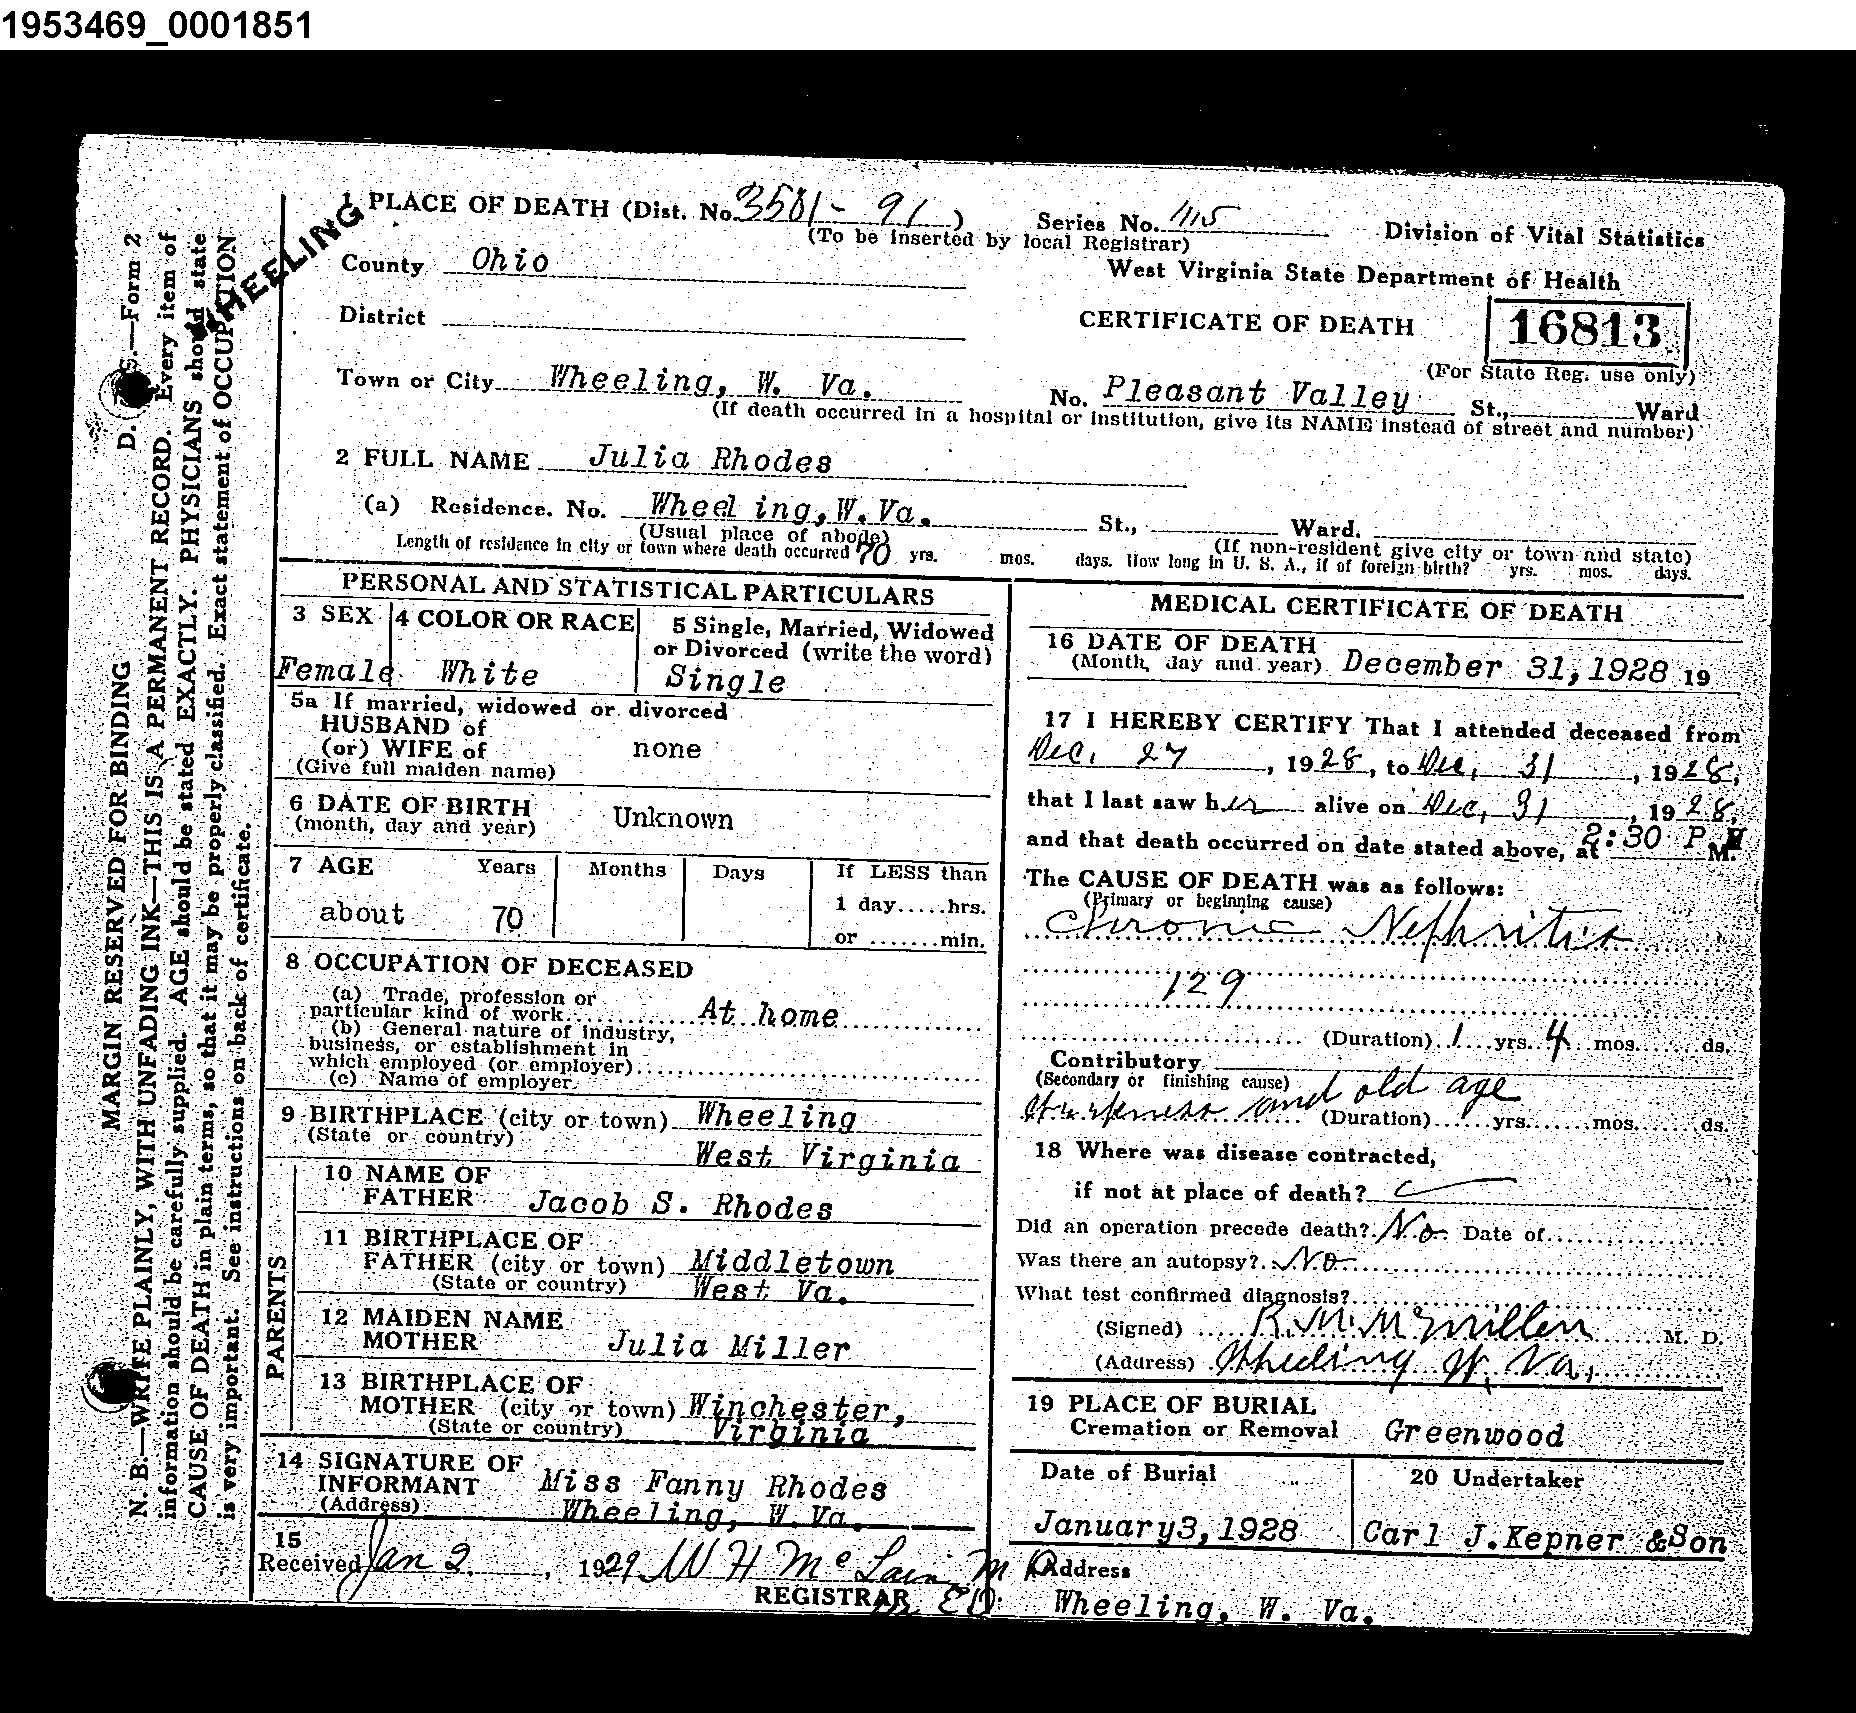 1953469_0001851
WHEELING
1 PLACE OF DEATH (Dist. No. 3501-91)
Series No. 115
(To be inserted by local Registrar)
Division of Vital Statistics
County Ohio
West Virginia State Department of Health
District
CERTIFICATE OF DEATH
16813
(For State Reg. use only)
Town or City Wheeling, W. Va.
No. Pleasant Valley St., Ward
(If death occurred in a hospital or institution, give its NAME instead of street and number)
2 FULL NAME Julia Rhodes
(a) Residence. No. Wheeling, W. Va. St., Ward.
(Usual place of abode)
(If non-resident give city or town and state)
Length of residence in city or town where death occurred 70 yrs. mos. days. How long in U. S. A., if of foreign birth? yrs. mos. days.
PERSONAL AND STATISTICAL PARTICULARS
3 SEX
Female
4 COLOR OR RACE
White
5 Single, Married, Widowed
or Divorced (write the word)
Single
5a If married, widowed or divorced
HUSBAND of
(or) WIFE of none
(Give full maiden name)
6 DATE OF BIRTH
(month, day and year) Unknown
7 AGE Years Months Days If LESS than
about 70 1 day.....hrs.
or .......min.
8 OCCUPATION OF DECEASED
(a) Trade, profession or
particular kind of work At home
(b) General nature of industry,
business, or establishment in
which employed (or employer)
(c) Name of employer
9 BIRTHPLACE (city or town) Wheeling
(State or country) West Virginia
PARENTS
10 NAME OF
FATHER Jacob S. Rhodes
11 BIRTHPLACE OF
FATHER (city or town) Middletown
(State or country) West Va.
12 MAIDEN NAME
MOTHER Julia Miller
13 BIRTHPLACE OF
MOTHER (city or town) Winchester,
(State or country) Virginia
14 SIGNATURE OF
INFORMANT Miss Fanny Rhodes
(Address) Wheeling, W. Va.
15
Received Jan 2, 1929 W H McLain M D
REGISTRAR
MEDICAL CERTIFICATE OF DEATH
16 DATE OF DEATH
(Month, day and year) December 31, 1928 19
17 I HEREBY CERTIFY That I attended deceased from
Dec. 27, 1928, to Dec, 31, 1928,
that I last saw her alive on Dec, 31, 1928,
and that death occurred on date stated above, at 2:30 P.M.
The CAUSE OF DEATH was as follows:
(Primary or beginning cause)
Chronic Nephritis
129
(Duration) 1 yrs. 4 mos. ds.
Contributory
(Secondary or finishing cause)
and old age
(Duration) yrs. mos. ds.
18 Where was disease contracted,
if not at place of death?
Did an operation precede death? No Date of
Was there an autopsy? No
What test confirmed diagnosis?
(Signed) R. M. McMillen M. D.
(Address) Wheeling W. Va.
19 PLACE OF BURIAL
Cremation or Removal Greenwood
Date of Burial
January 3, 1928
20 Undertaker
Carl J. Kepner & Son
Address
Wheeling, W. Va.
D. S.—Form 2
MARGIN RESERVED FOR BINDING
N. B.—WRITE PLAINLY, WITH UNFADING INK—THIS IS A PERMANENT RECORD. Every item of
information should be carefully supplied. AGE should be stated EXACTLY. PHYSICIANS should state
CAUSE OF DEATH in plain terms, so that it may be properly classified. Exact statement of OCCUPATION
is very important. See instructions on back of certificate.